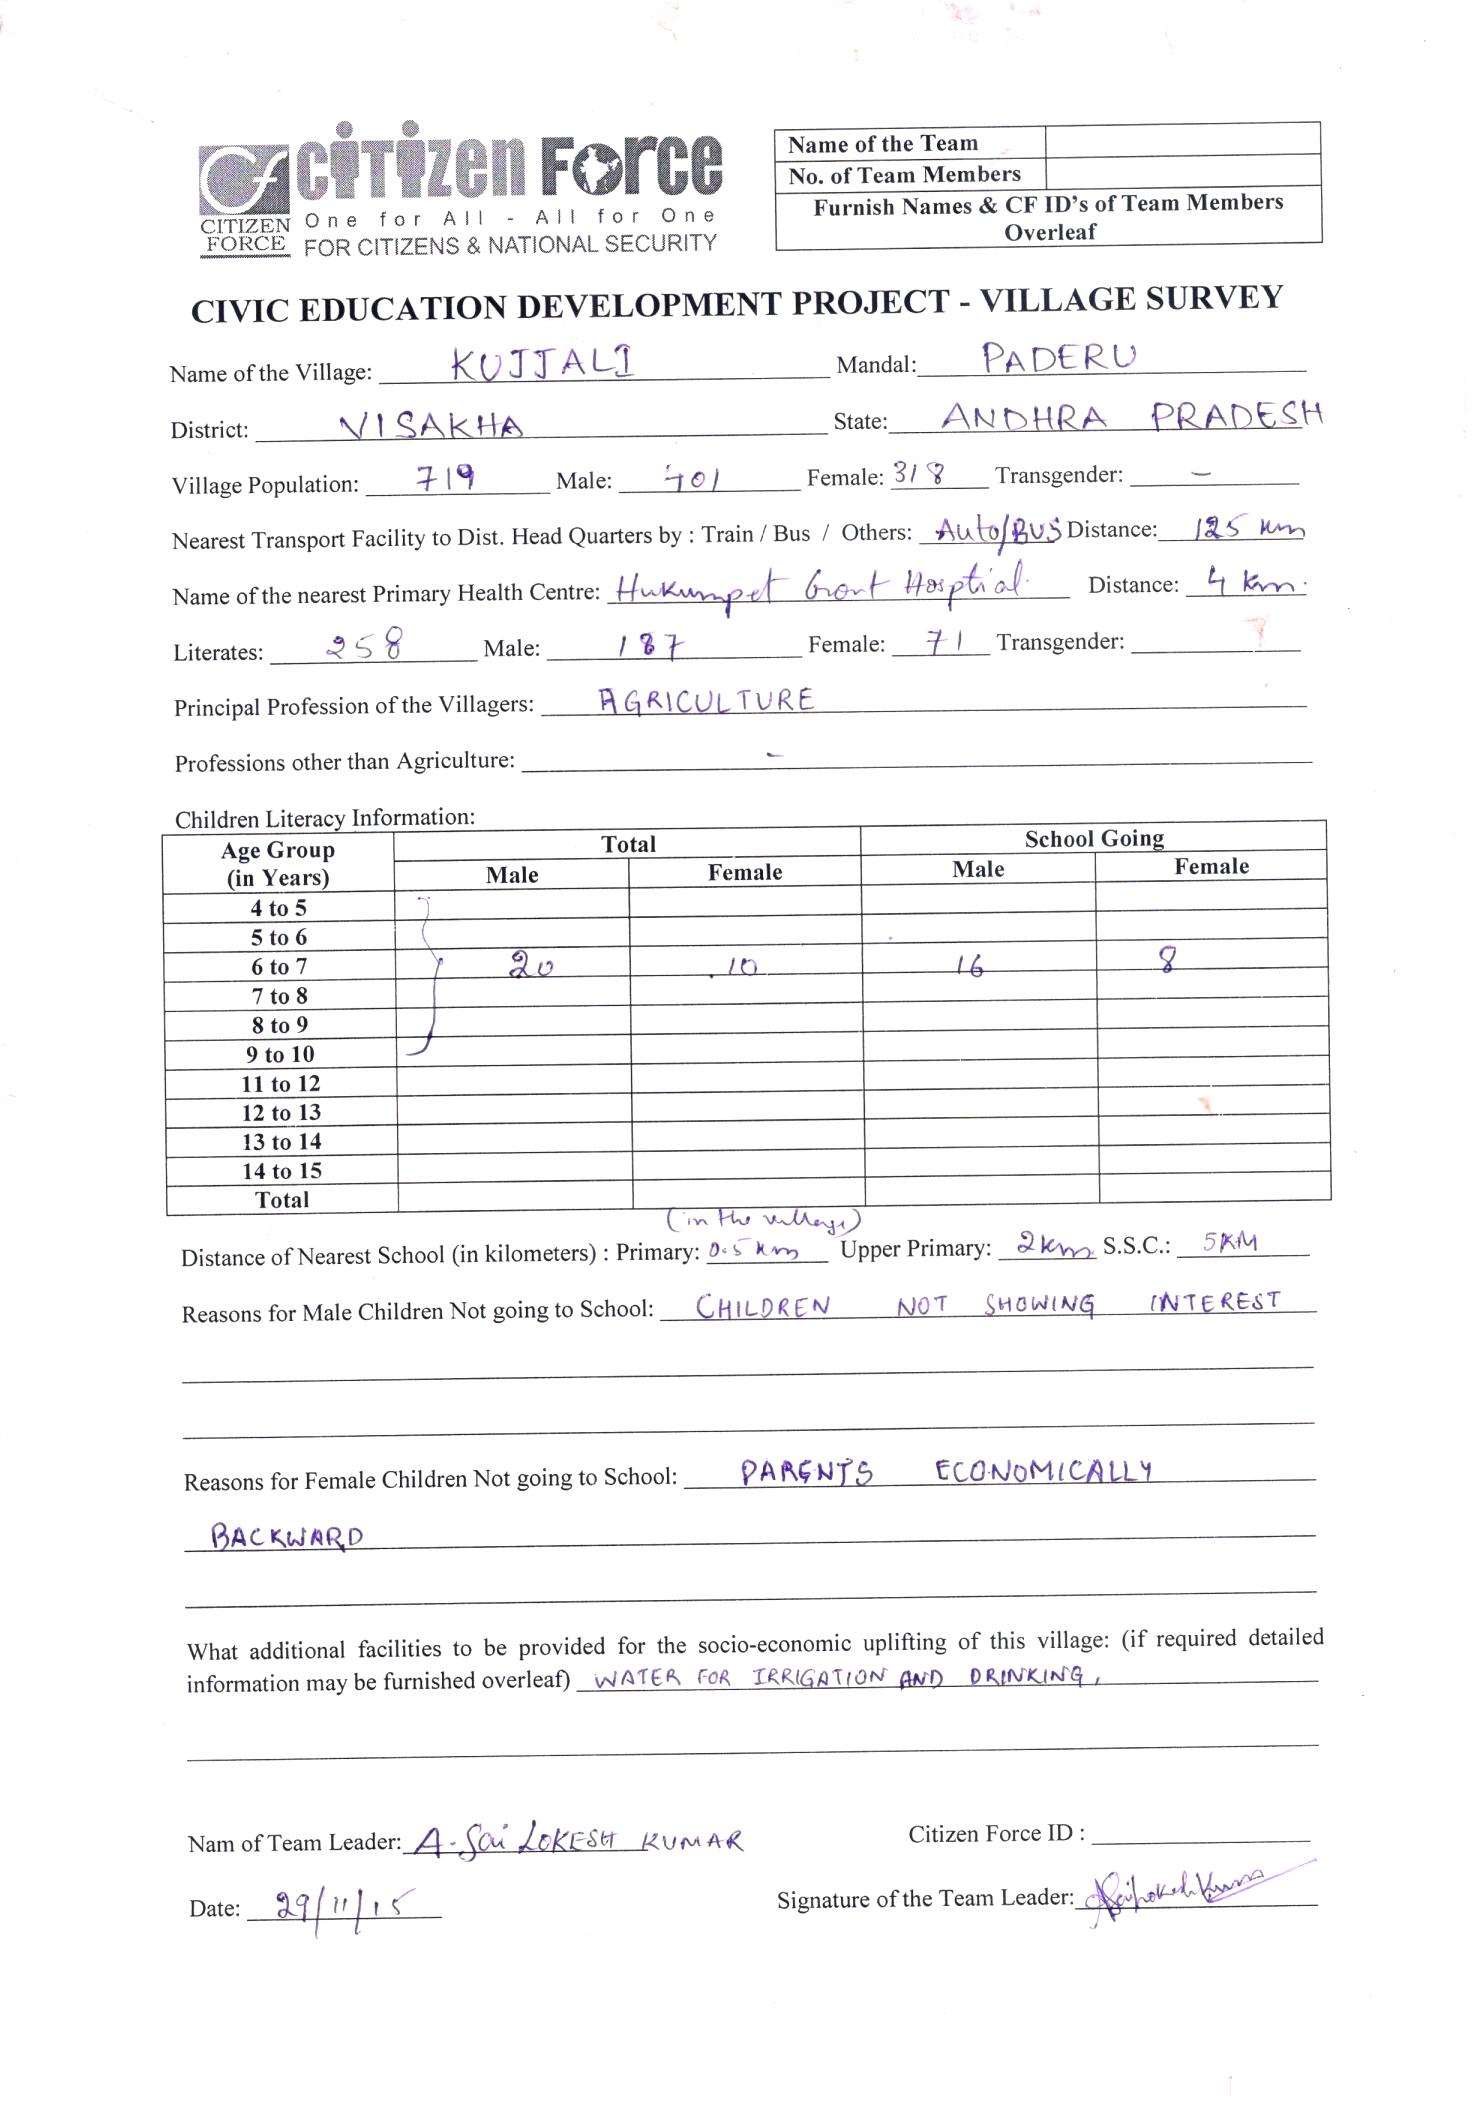 Cf CiTiZen Force
CITIZEN FORCE
One for All - All for One
FOR CITIZENS & NATIONAL SECURITY
Name of the Team
No. of Team Members
Furnish Names & CF ID's of Team Members
Overleaf
CIVIC EDUCATION DEVELOPMENT PROJECT - VILLAGE SURVEY
Name of the Village: KUJJALI Mandal: PADERU
District: VISAKHA State: ANDHRA PRADESH
Village Population: 719 Male: 401 Female: 318 Transgender: –
Nearest Transport Facility to Dist. Head Quarters by : Train / Bus / Others: Auto/BUS Distance: 125 km
Name of the nearest Primary Health Centre: Hukumpet Govt Hosptial Distance: 4 km.
Literates: 258 Male: 187 Female: 71 Transgender:
Principal Profession of the Villagers: AGRICULTURE
Professions other than Agriculture: –
Children Literacy Information:
Age Group (in Years) Total School Going
Male Female Male Female
4 to 5
5 to 6
6 to 7 20 10 16 8
7 to 8
8 to 9
9 to 10
11 to 12
12 to 13
13 to 14
14 to 15
Total
(in the village)
Distance of Nearest School (in kilometers) : Primary: 0.5 km Upper Primary: 2km S.S.C.: 5KM
Reasons for Male Children Not going to School: CHILDREN NOT SHOWING INTEREST
Reasons for Female Children Not going to School: PARENTS ECONOMICALLY
BACKWARD
What additional facilities to be provided for the socio-economic uplifting of this village: (if required detailed
information may be furnished overleaf) WATER FOR IRRIGATION AND DRINKING.
Nam of Team Leader: A. Sai LOKESH KUMAR Citizen Force ID :
Date: 29/11/15 Signature of the Team Leader: ASaiLokeshKumar